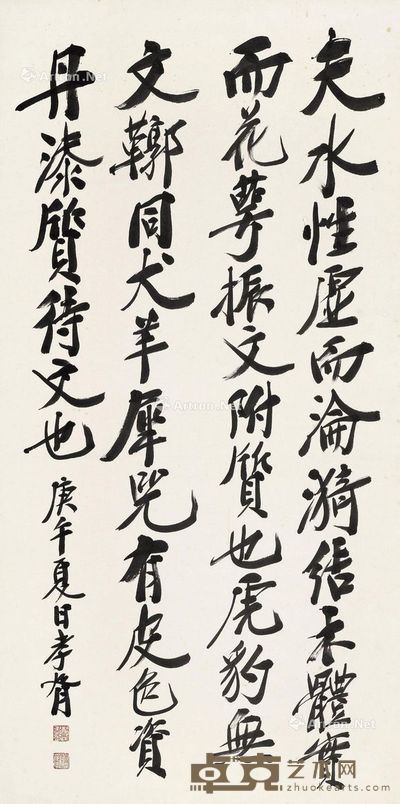 夫水性虛而淪漪結木體實
而花萼振文附質也虎豹無
文鞹同犬羊犀兕有皮色資
丹漆質待文也
庚午夏日孝胥
Artron.Net
卓克艺术网
zhuokearts.com